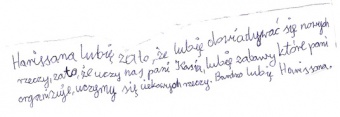 Hanissana lubię za to, że lubię dowiadywać się nowych
rzeczy, za to, że uczy nas pani Kasia, lubię zabawy które pani
organizuje, uczymy się ciekawych rzeczy. Bardzo lubię Hanissana.